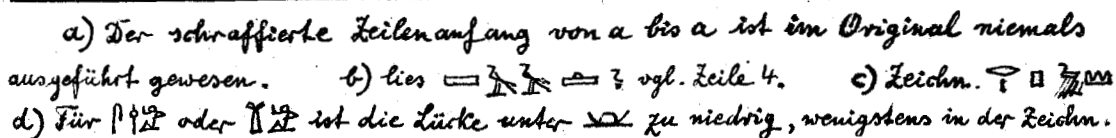 a) Der schraffierte Zeilenanfang von a bis a ist im Original niemals
ausgeführt gewesen. b) lies vgl. Zeile 4. c) Zeichn.
d) Für oder ist die Lücke unter zu niedrig, wenigstens in der Zeichn.